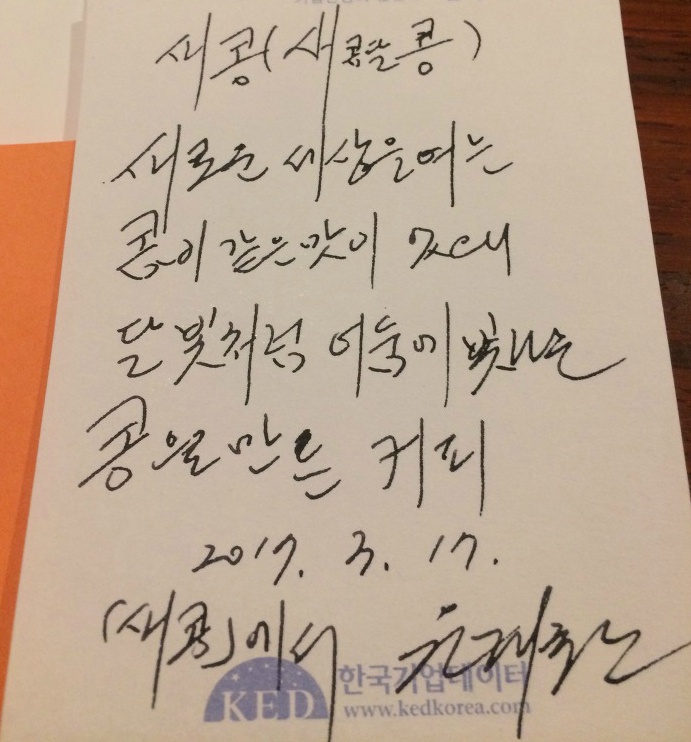 새콩(새콤달콩)
새로운 세상을 여는
콩이 같은 맛이
달빛처럼 어둠에 빛나는
콩으로 만든 커피
2017. 3. 17.
「새콩」에서
KED 한국기업데이터
www.kedkorea.com